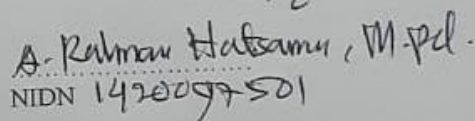 A. Rahman Hatsama, M.Pd.
NIDN 1420097501